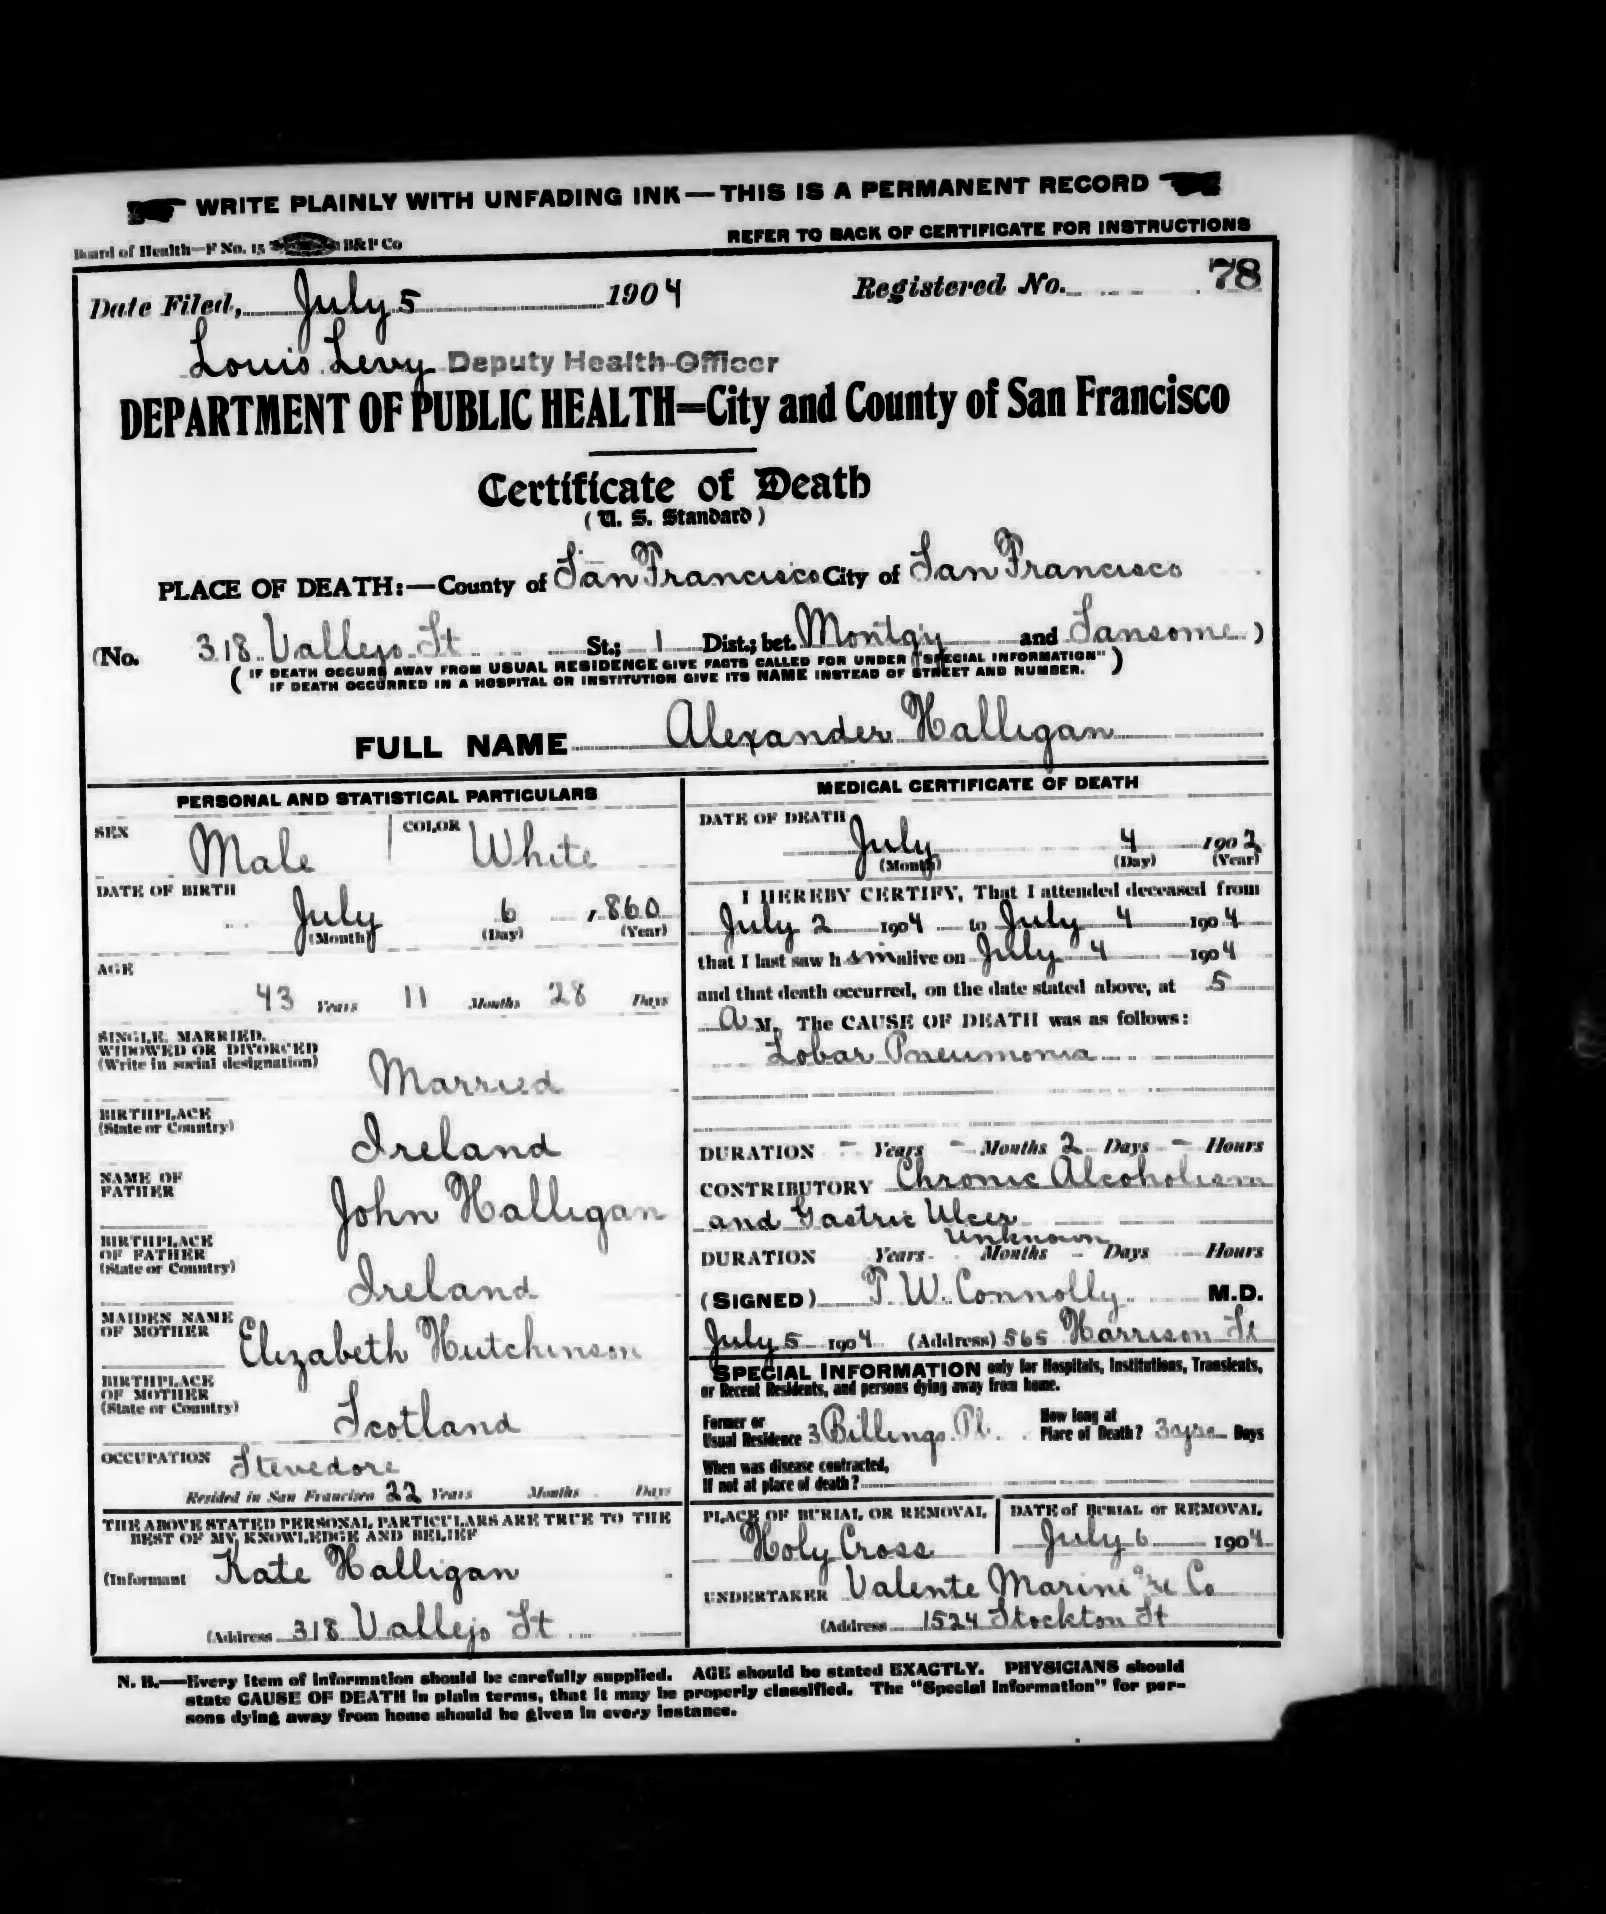 WRITE PLAINLY WITH UNFADING INK—THIS IS A PERMANENT RECORD
Board of Health—F No. 15 B&P Co
REFER TO BACK OF CERTIFICATE FOR INSTRUCTIONS
Date Filed, July 5 1904 Registered No. 78
Louis Levy Deputy Health Officer
DEPARTMENT OF PUBLIC HEALTH=City and County of San Francisco
Certificate of Death
(U. S. Standard)
PLACE OF DEATH:—County of San Francisco City of San Francisco
(No. 318 Vallejo St St.; 1 Dist.; bet. Montgy and Sansome)
(IF DEATH OCCURS AWAY FROM USUAL RESIDENCE GIVE FACTS CALLED FOR UNDER "SPECIAL INFORMATION"
IF DEATH OCCURRED IN A HOSPITAL OR INSTITUTION GIVE ITS NAME INSTEAD OF STREET AND NUMBER.)
FULL NAME Alexander Halligan
PERSONAL AND STATISTICAL PARTICULARS
SEX Male COLOR White
DATE OF BIRTH
July 6 1860
(Month) (Day) (Year)
AGE
43 Years 11 Months 28 Days
SINGLE, MARRIED,
WIDOWED OR DIVORCED
(Write in social designation)
Married
BIRTHPLACE
(State or Country)
Ireland
NAME OF
FATHER
John Halligan
BIRTHPLACE
OF FATHER
(State or Country)
Ireland
MAIDEN NAME
OF MOTHER
Elizabeth Hutchinson
BIRTHPLACE
OF MOTHER
(State or Country)
Scotland
OCCUPATION Stevedore
Resided in San Francisco 22 Years Months Days
THE ABOVE STATED PERSONAL PARTICULARS ARE TRUE TO THE
BEST OF MY KNOWLEDGE AND BELIEF
(Informant Kate Halligan
(Address 318 Vallejo St
MEDICAL CERTIFICATE OF DEATH
DATE OF DEATH
July 4 1902
(Month) (Day) (Year)
I HEREBY CERTIFY, That I attended deceased from
July 2 1904 to July 4 1904
that I last saw him alive on July 4 1904
and that death occurred, on the date stated above, at 5
A M. The CAUSE OF DEATH was as follows:
Lobar Pneumonia
DURATION - Years - Months 2 Days - Hours
CONTRIBUTORY Chronic Alcoholism
and Gastric Ulcer
Unknown
DURATION Years Months Days Hours
(SIGNED) T. W. Connolly M.D.
July 5 1904 (Address) 565 Harrison St
SPECIAL INFORMATION only for Hospitals, Institutions, Transients,
or Recent Residents, and persons dying away from home.
Former or
Usual Residence 3 Billings Pl.
How long at
Place of Death? 3 yrs Days
When was disease contracted,
If not at place of death?
PLACE OF BURIAL OR REMOVAL
Holy Cross
DATE of BURIAL or REMOVAL
July 6 1904
UNDERTAKER Valente Marini & Co
(Address 1524 Stockton St
N. B.—Every item of information should be carefully supplied. AGE should be stated EXACTLY. PHYSICIANS should
state CAUSE OF DEATH in plain terms, that it may be properly classified. The "Special Information" for per-
sons dying away from home should be given in every instance.